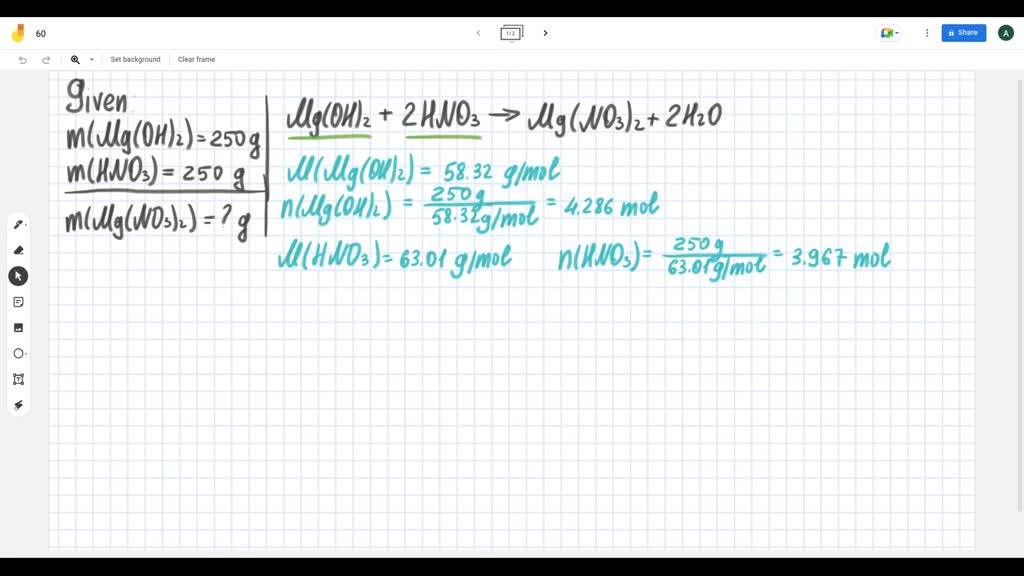 60
1/2
Share
A
Set background
Clear frame
Given
m(Mg(OH)2)=250g
m(HNO3)=250 g
m(Mg(NO3)2)=? g
Mg(OH)2 + 2HNO3 → Mg(NO3)2 + 2H2O
M(Mg(OH)2) = 58.32 g/mol
n(Mg(OH)2) = 250g / 58.32g/mol = 4.286 mol
M(HNO3)=63.01 g/mol n(HNO3)= 250g / 63.01g/mol = 3.967 mol